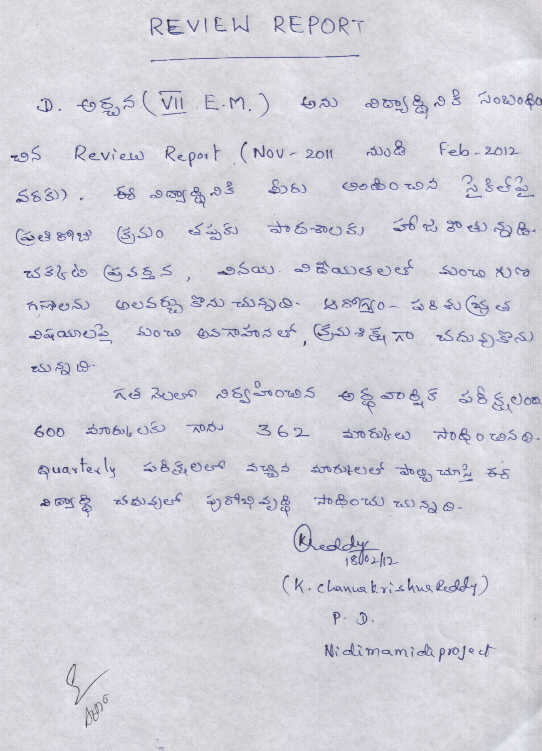 REVIEW REPORT
D. అర్చన ( VII E.M. ) అను విద్యార్థినికి సంబంధిం
చిన Review Report (Nov-2011 నుండి Feb-2012
వరకు). ఈ విద్యార్థినికి మీరు అందించిన సైకిల్‌పై
ప్రతిరోజు క్రమం తప్పక పాఠశాలకు హాజరౌతున్నది.
చక్కటి ప్రవర్తన, వినయ విధేయతలతో మంచి గుణ
గణాలను అలవర్చుకొనుచున్నది. ఆరోగ్యం - పరిశుభ్రత
విషయాలపై మంచి అవగాహనతో, క్రమశిక్షణగా చదువుకొను
చున్నది.
గత నెలలో నిర్వహించిన అర్థవార్షిక పరీక్షలందు
600 మార్కులకు గాను 362 మార్కులు సాధించినది.
Quarterly పరీక్షలలో వచ్చిన మార్కులతో పోల్చి చూస్తే ఈ
విద్యార్థి చదువులో పురోభివృద్ధి సాధించుచున్నది.
KReddy
18/02/12
(K. Channakrishna Reddy)
P. D.
Nidimamidi project